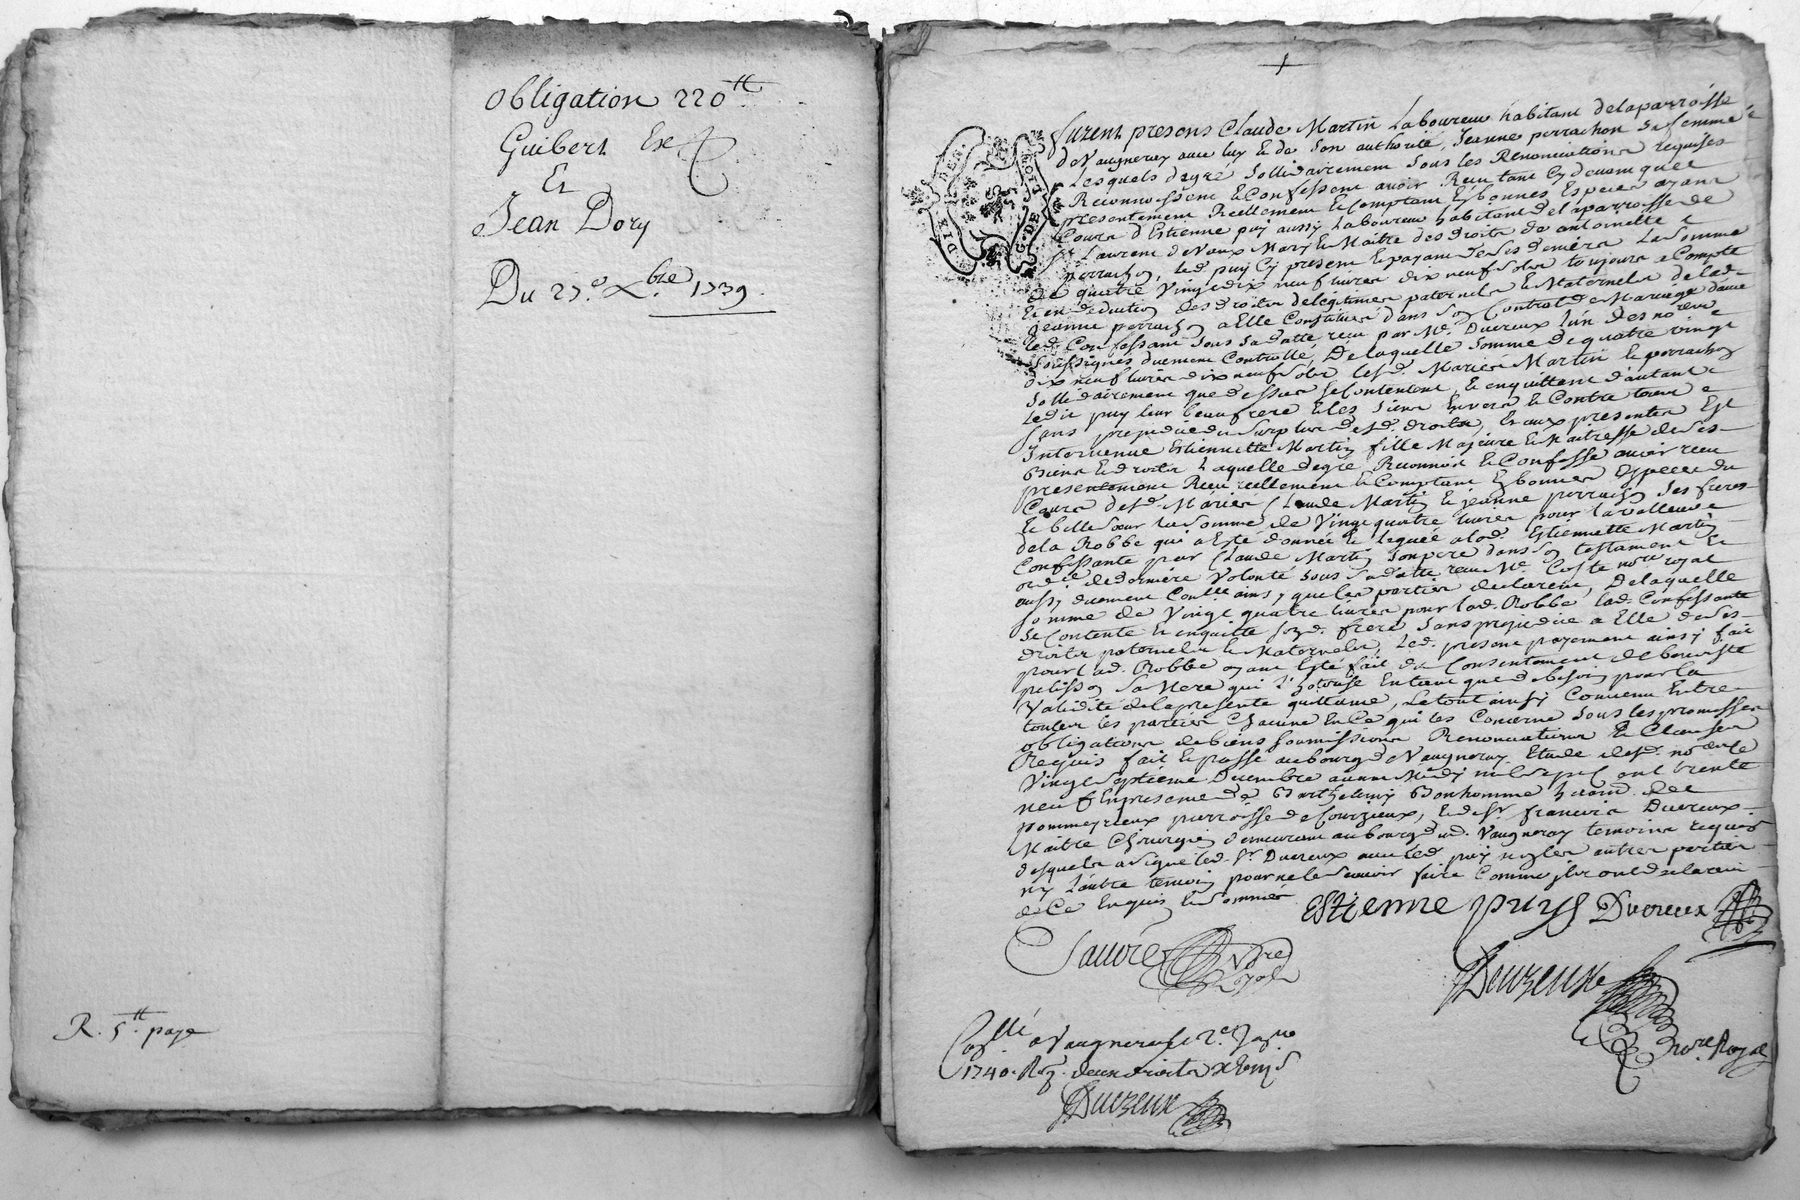 Obligation 220ᵗᵗ
Guibert
Et
Jean Dory
Du 27ᵉ Xbre 1739
R. 5ᵗᵗ page
DIX DEN.
G. DE
furent presens Claude Martin Laboureur habitant delaparroisse
de Vaugneray avec luy & de son authorité, Jeanne perrachon sa femme
Lesquels degré sollidairement sous les Renonciations requises
Reconnoissent & Confessent avoir Receu tant cydevant que
presentement Reellement & Comptant en bonnes Especes ayant
Cours d'Estienne puy aussy Laboureur habitant delaparroisse de
St Laurent de Vaux Mary & Maitre des droits de antoinette
perrachon, led. puy Cy present & payant de ses deniers La somme
de quatre Vingt dix neuf livres dix neuf sols toujours a Compte
& en deduction des droits de legitimes paternels & Maternels de lad.
Jeanne perrachon a Elle Constitués dans son Contrat de Mariage avec
led. Confessant sous sa datte receu par Me. Ducreux l'un des nores
soussignés duement Controllé, De laquelle somme de quatre vingt
dix neuf livres dix neuf sols lesd. Mariés Martin & perrachon
sollidairement que dessus se Contentent, & en quittent d'autant
ledit puy leur beaufrere & les siens Envers & Contre tous
sans prejudice du surplus desd. droits, Et aux presentes Est
Intervenue Estiennette Martin fille Majeure & Maitresse de ses
Biens & droits Laquelle degré Reconnoit & Confesse avoir receu
presentement Reellement & Comptant En bonnes Especes du
Cours desd. Mariés Claude Martin & jeanne perrachon ses frere
& belle sœur la somme de Vingt quatre livres pour la valleur
dela Robbe qui a Esté donnée & leguée a lad. Estiennette Martin
Confessante par Claude Martin son pere dans son testament &
de derniere Volonté sous sa datte receu Me Coste nore royal
aussy duement Conllé ainsy que les parties declarent, De laquelle
somme de Vingt quatre livres pour lad. Robbe lad. Confessante
se Contente & en quitte sond. frere sans prejudice a Elle de ses
droits paternels & Maternels, led. present payement ainsy fait
pour lad. Robbe ayant Esté fait du Consentement de
pelisson sa Mere qui l'hotorise En tant que de besoin pour la
Validité de la presente quittance, Le tout ainsy Convenu Entre
toutes les parties Chacune En Ce qui les Concerne sous les promesses
obligations de biens soumissions Renonciations & Clauses
Requis fait & passé au bourg de Vaugneray Etude desd. nores le
Vingt septieme Decembre avant Midy mil sept cent trente
neuf En presence de Barthelemy Bonhomme habitd. de
pommeyrieux parroisse de Courzieux, & de sr. francois Ducreux
Maitre Chirurgien demeurant au bourg dud. Vaugneray temoins requis
desquels a signé led. Sr Ducreux avec led. puy non les autres parties
ny L'autre temoin pour ne le scavoir faire Comme ils ont declaré
de Ce Enquis & sommés
Estienne puys Ducreux
nore
Royal
Ducreux
nore. Royal
Conllé a Vaugneray le 2e. Janv
1740. Reç. deux droits
Ducreux